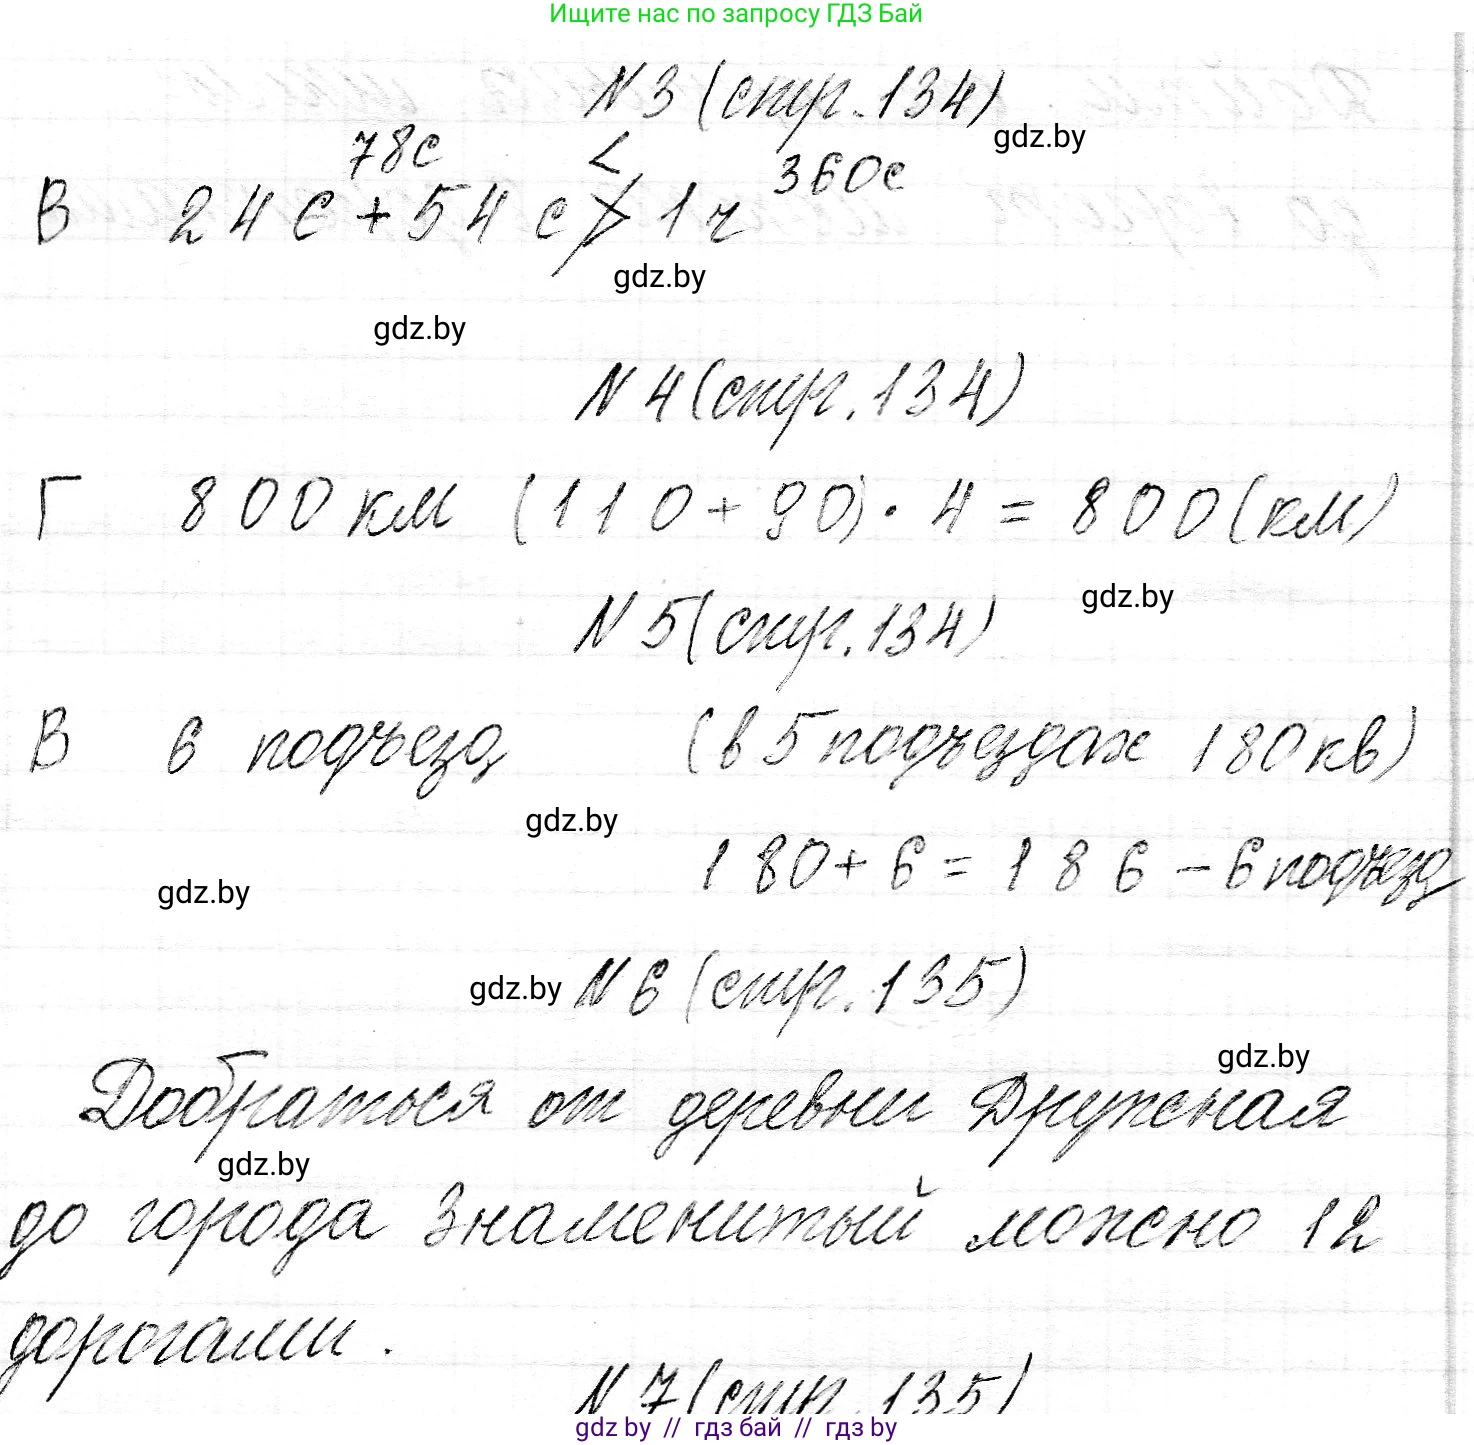 Ищите нас по запросу ГДЗ Бай
N 3 (стр. 134)
gdz.by
78с < 360с
В 24 с + 54 с > 1 ч
gdz.by
gdz.by
N 4 (стр. 134)
Г 800 км (110 + 90) · 4 = 800 (км)
gdz.by
N 5 (стр. 134)
В 6 подъезд (в 5 подъездах 180 кв)
gdz.by
180 + 6 = 186 – 6 подъезд
gdz.by
gdz.by N 6 (стр. 135)
gdz.by
Добраться от деревни Дружная
gdz.by
до города Знаменитый можно 12
дорогами.
N 7 (стр. 135)
gdz by // гдз бай // гдз by